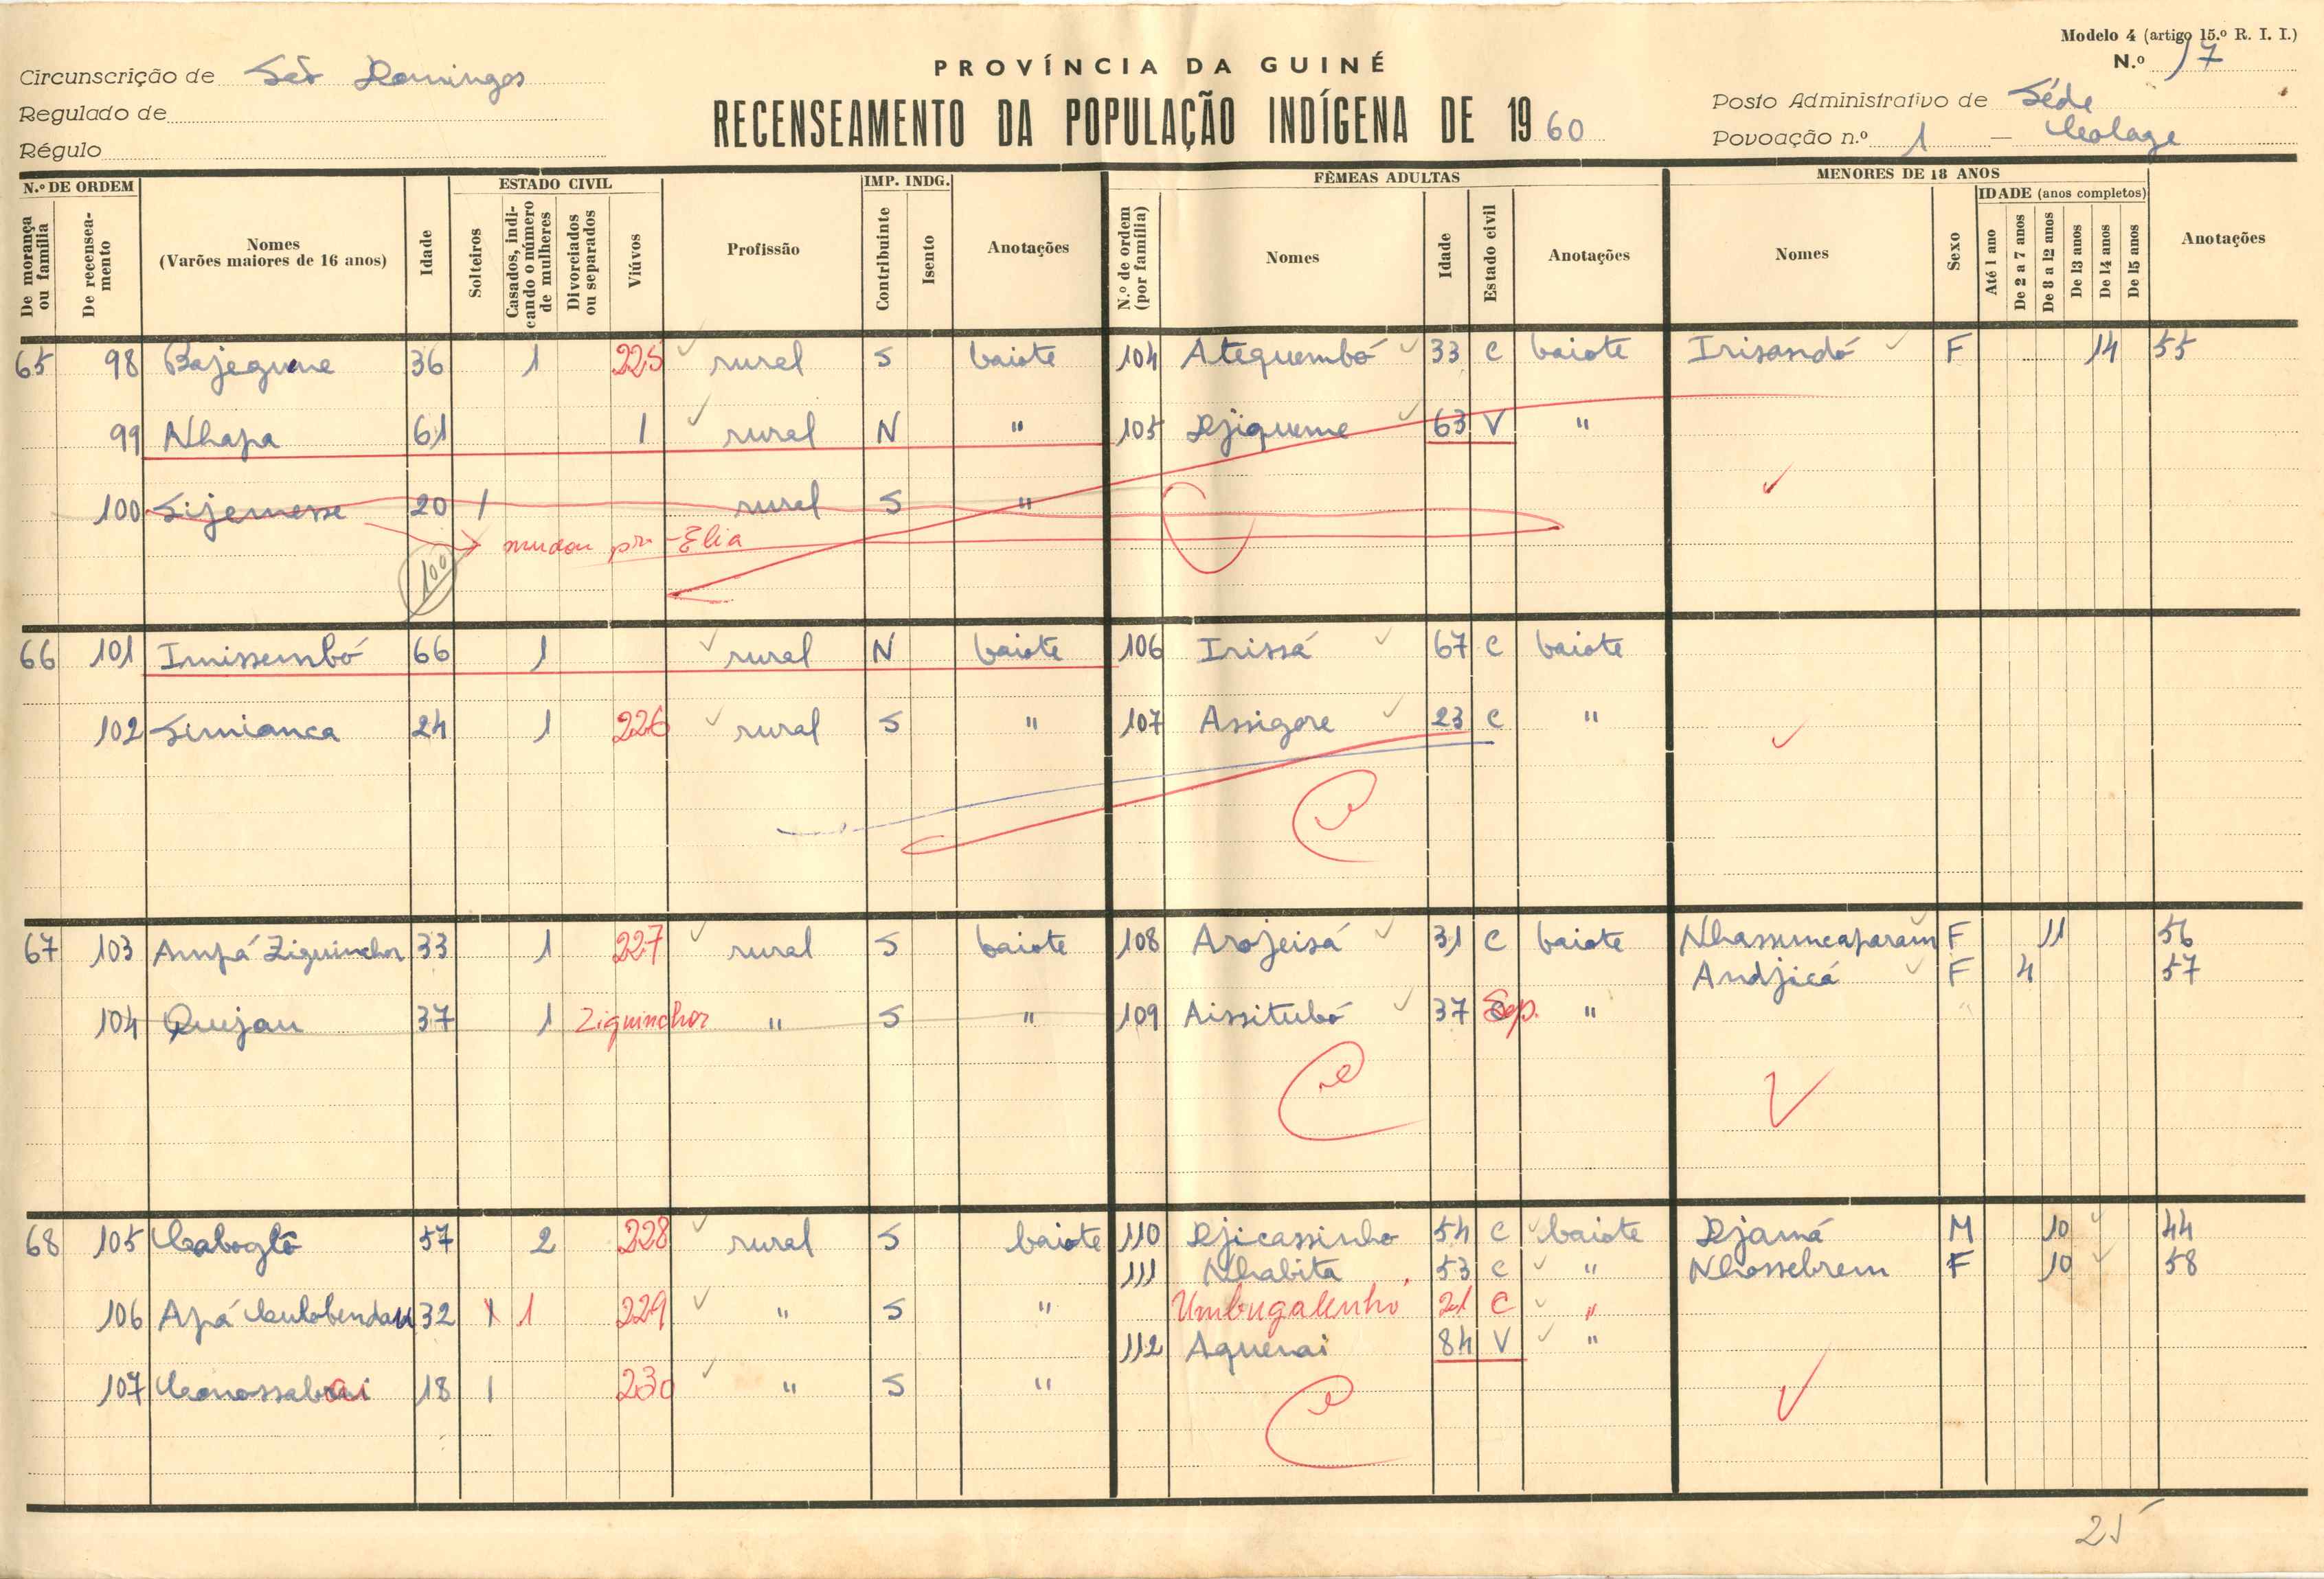 Modelo 4 (artigo 15.º R. I. I.)
N.º 17
PROVÍNCIA DA GUINÉ
RECENSEAMENTO DA POPULAÇÃO INDÍGENA DE 1960
Circunscrição de São Domingos
Regulado de
Régulo
Posto Administrativo de Séde
Povoação n.º 1 — Colage
N.º DE ORDEM
De morança ou família
De recenseamento
Nomes
(Varões maiores de 16 anos)
Idade
ESTADO CIVIL
Solteiros
Casados, indicando o número de mulheres
Divorciados ou separados
Viúvos
Profissão
IMP. INDG.
Contribuinte
Isento
Anotações
FÊMEAS ADULTAS
N.º de ordem (por família)
Nomes
Idade
Estado civil
Anotações
MENORES DE 18 ANOS
Nomes
Sexo
IDADE (anos completos)
Até 1 ano
De 2 a 7 anos
De 8 a 12 anos
De 13 anos
De 14 anos
De 15 anos
Anotações
65 98 Bajegune 36 1 225 rural S baiote 104 Atequembó 33 C baiote Irisandó F 14 55
99 Nhapa 61 1 rural N " 105 Djiqueme 63 V "
100 Sijemesse 20 1 rural S "
mudou pra Elia
100
66 101 Imissembó 66 1 rural N baiote 106 Irissá 67 C baiote
102 Simianca 24 1 226 rural S " 107 Assigore 23 C "
67 103 Ampá Ziguinchor 33 1 227 rural S baiote 108 Arojeisá 31 C baiote Nhassuncaparam F 11 56
Andjicá F 4 57
104 Quejau 37 1 Ziguinchor " S " 109 Aissitubó 37 Sep. "
68 105 Cabogtô 57 2 228 rural S baiote 110 Djicassinho 54 C baiote Djamá M 10 44
111 Nhabita 53 C " Nhossebrem F 10 58
106 Apá Culobendau 32 1 1 229 " S " Umbugalenhó 21 C "
112 Aquenai 84 V "
107 Conossabrai 18 1 230 " S "
25